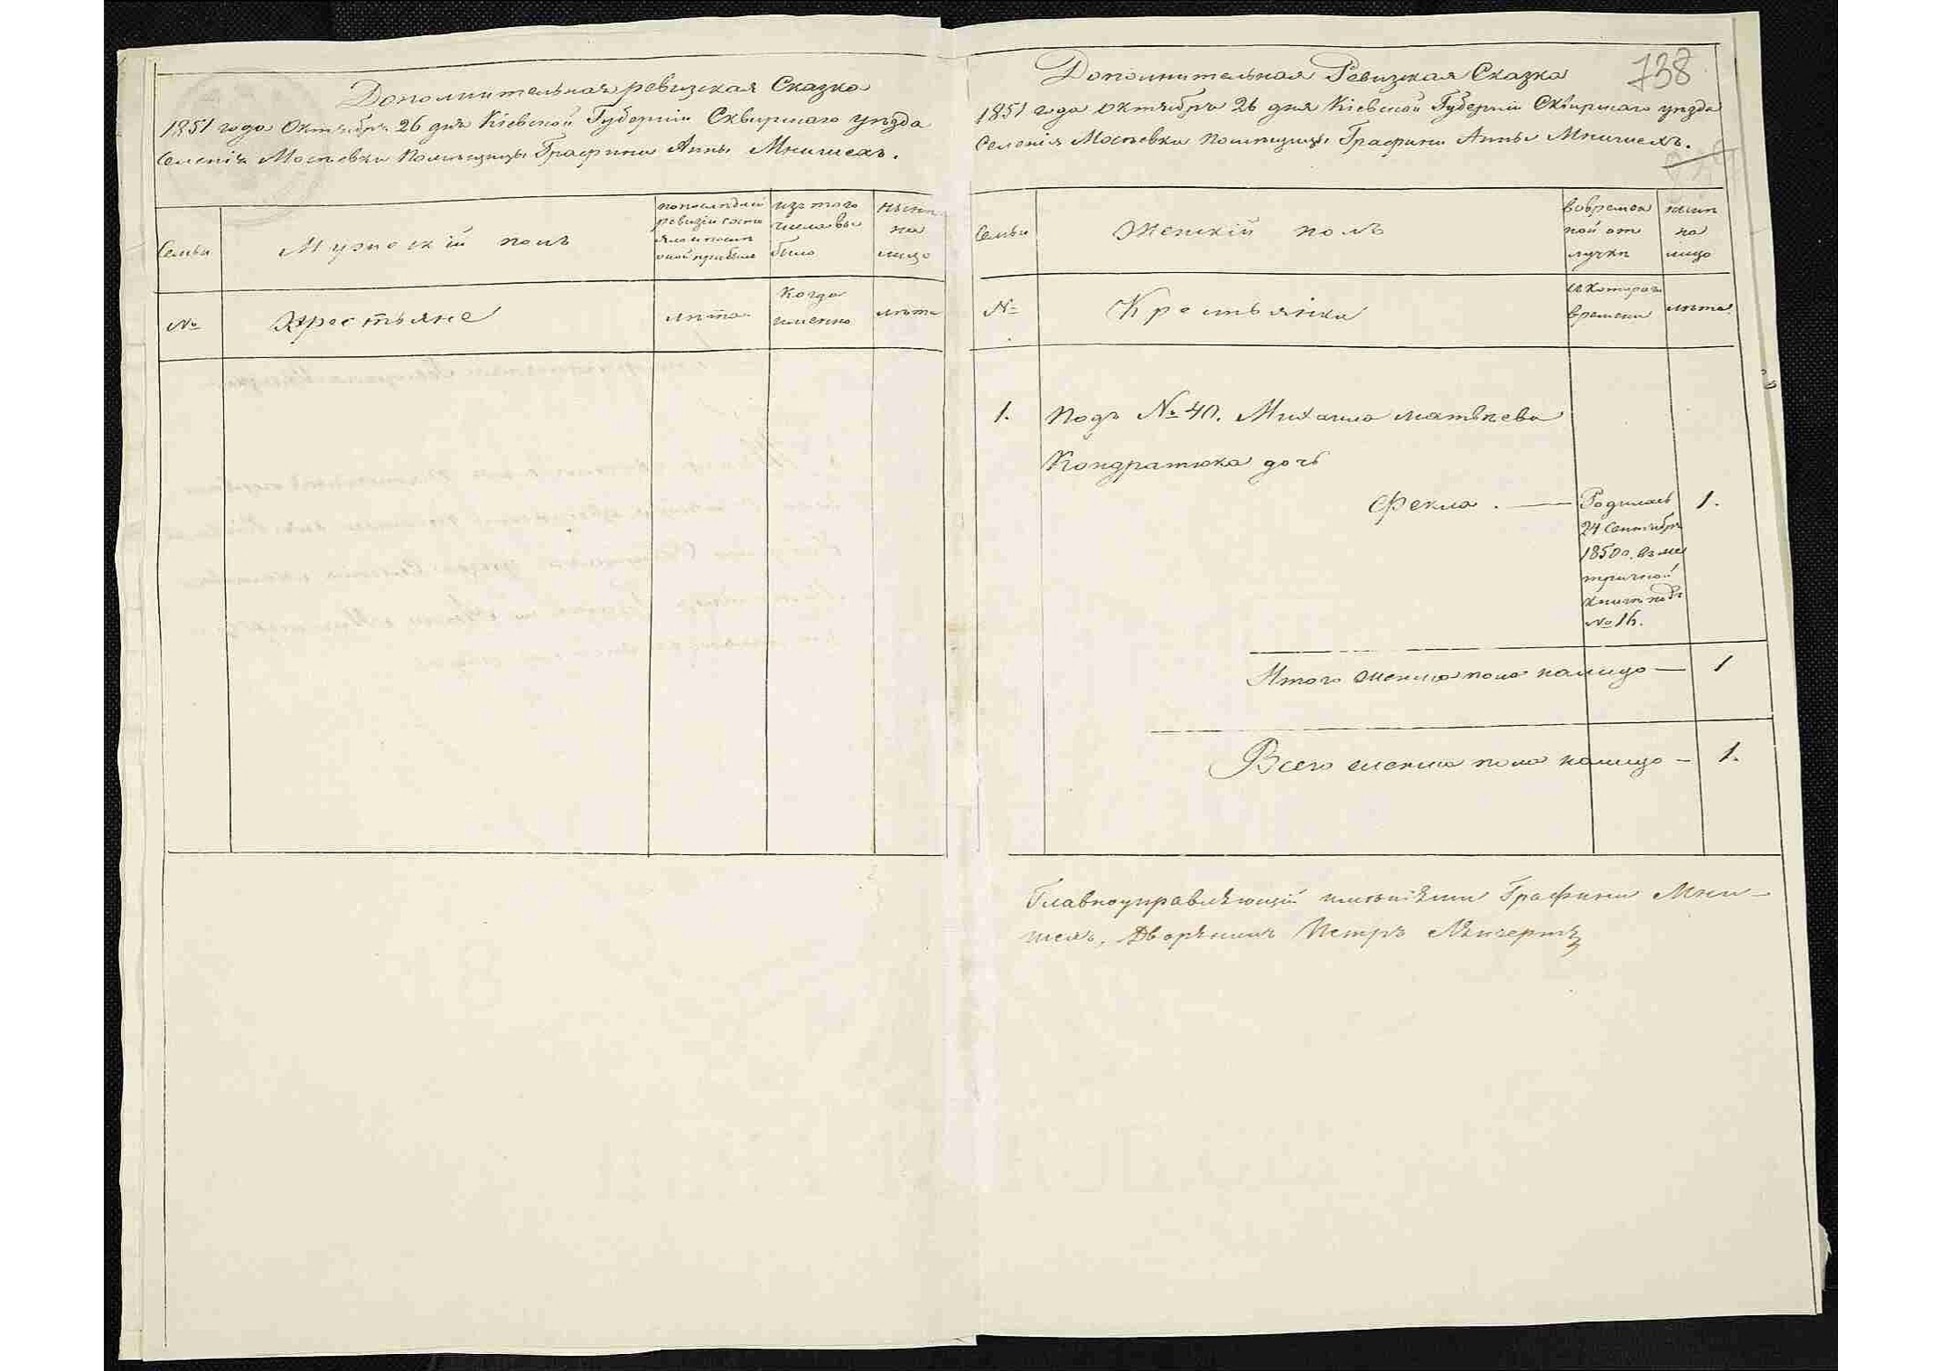 Дополнительная ревизская Сказка
1851 года Октября 26 дня Кіевской Губерніи Сквирскаго уѣзда
Селенія Мостъвки Помѣщицы Графини Анны Мнишехъ.
Семьи
Мужескій полъ
попослѣдней ревизіи состояло и послѣ оной прибыло
изъ того числа выбыло
нынѣ на лицо
№
Крестьяне
лѣта
Когда именно
лѣта
738
Дополнительная Ревизская Сказка
1851 года Октября 26 дня Кіевской Губерніи Сквирскаго уѣзда
Селенія Мостъвки Помѣщицы Графини Анны Мнишехъ.
Семьи
Женскій полъ
вовремен
ной от
лучки
нынѣ
на
лицо
№
Крестьянки
съ котораго
времени
лѣта
1. Подъ № 40. Михаила матвѣева
Кондратюка дочь
Фекла . — Родилась 1.
24 сентября
1850 г. въ ме
трической
книгѣ подъ
№ 16.
Итого женска пола налицо — 1
Всего женска пола налицо — 1.
Главноуправляющій имѣніями Графини Мни-
шехъ, Дворянинъ Петръ